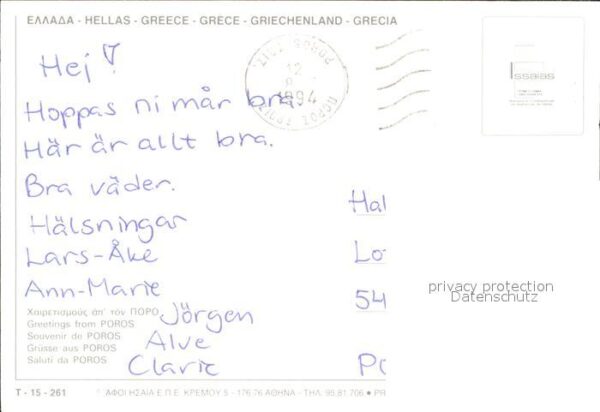 ΕΛΛΑΔΑ - HELLAS - GREECE - GRÈCE - GRIECHENLAND - GRECIA
Hej!
Hoppas ni mår bra.
Här är allt bra.
Bra väder.
Hälsningar
Lars-Åke
Ann-Marie
Jörgen
Alve
Χαιρετισμούς ἀπ' τον ΠΟΡΟ
Greetings from POROS
Souvenir de POROS
Grüsse aus POROS
Saluti da POROS
T - 15 - 261
ΑΦΟΙ ΗΣΑΪΑ Ε.Π.Ε. ΚΡΕΜΟΥ 5 - 176 76 ΑΘΗΝΑ - ΤΗΛ. 95 81 706 • PR
POROS
12
1994
ΠΟΡΟΣ
Issaias
Hal
Lo
54
Po
privacy protection
Datenschutz